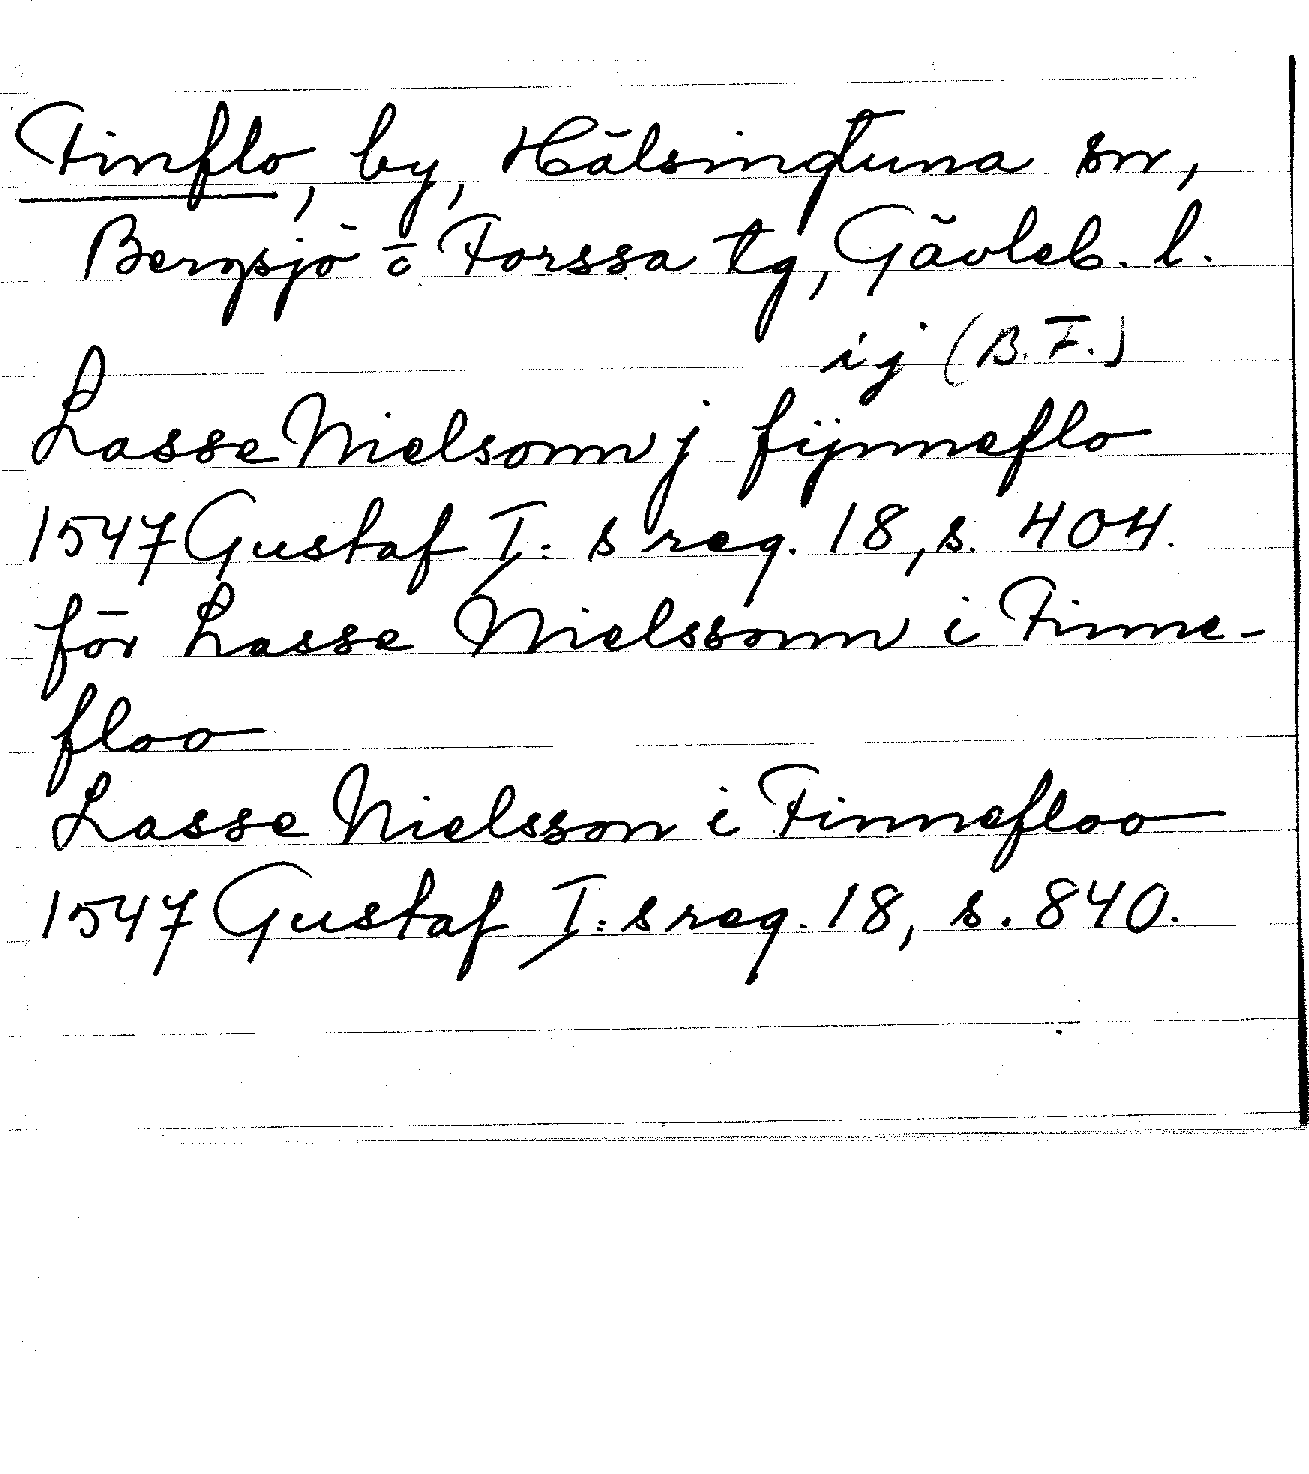 Finflo, by, Hälsingtuna sn,
Bergsjö o Forssa tg, Gävleb. l.
ij (B. F.)
Lasse Nielsonn j fijnneflo
1547 Gustaf I: s reg. 18, s. 404.
för Lasse Nielssonn i Finne-
floo
Lasse Nielsson i Finnefloo
1547 Gustaf I: s reg. 18, s. 840.